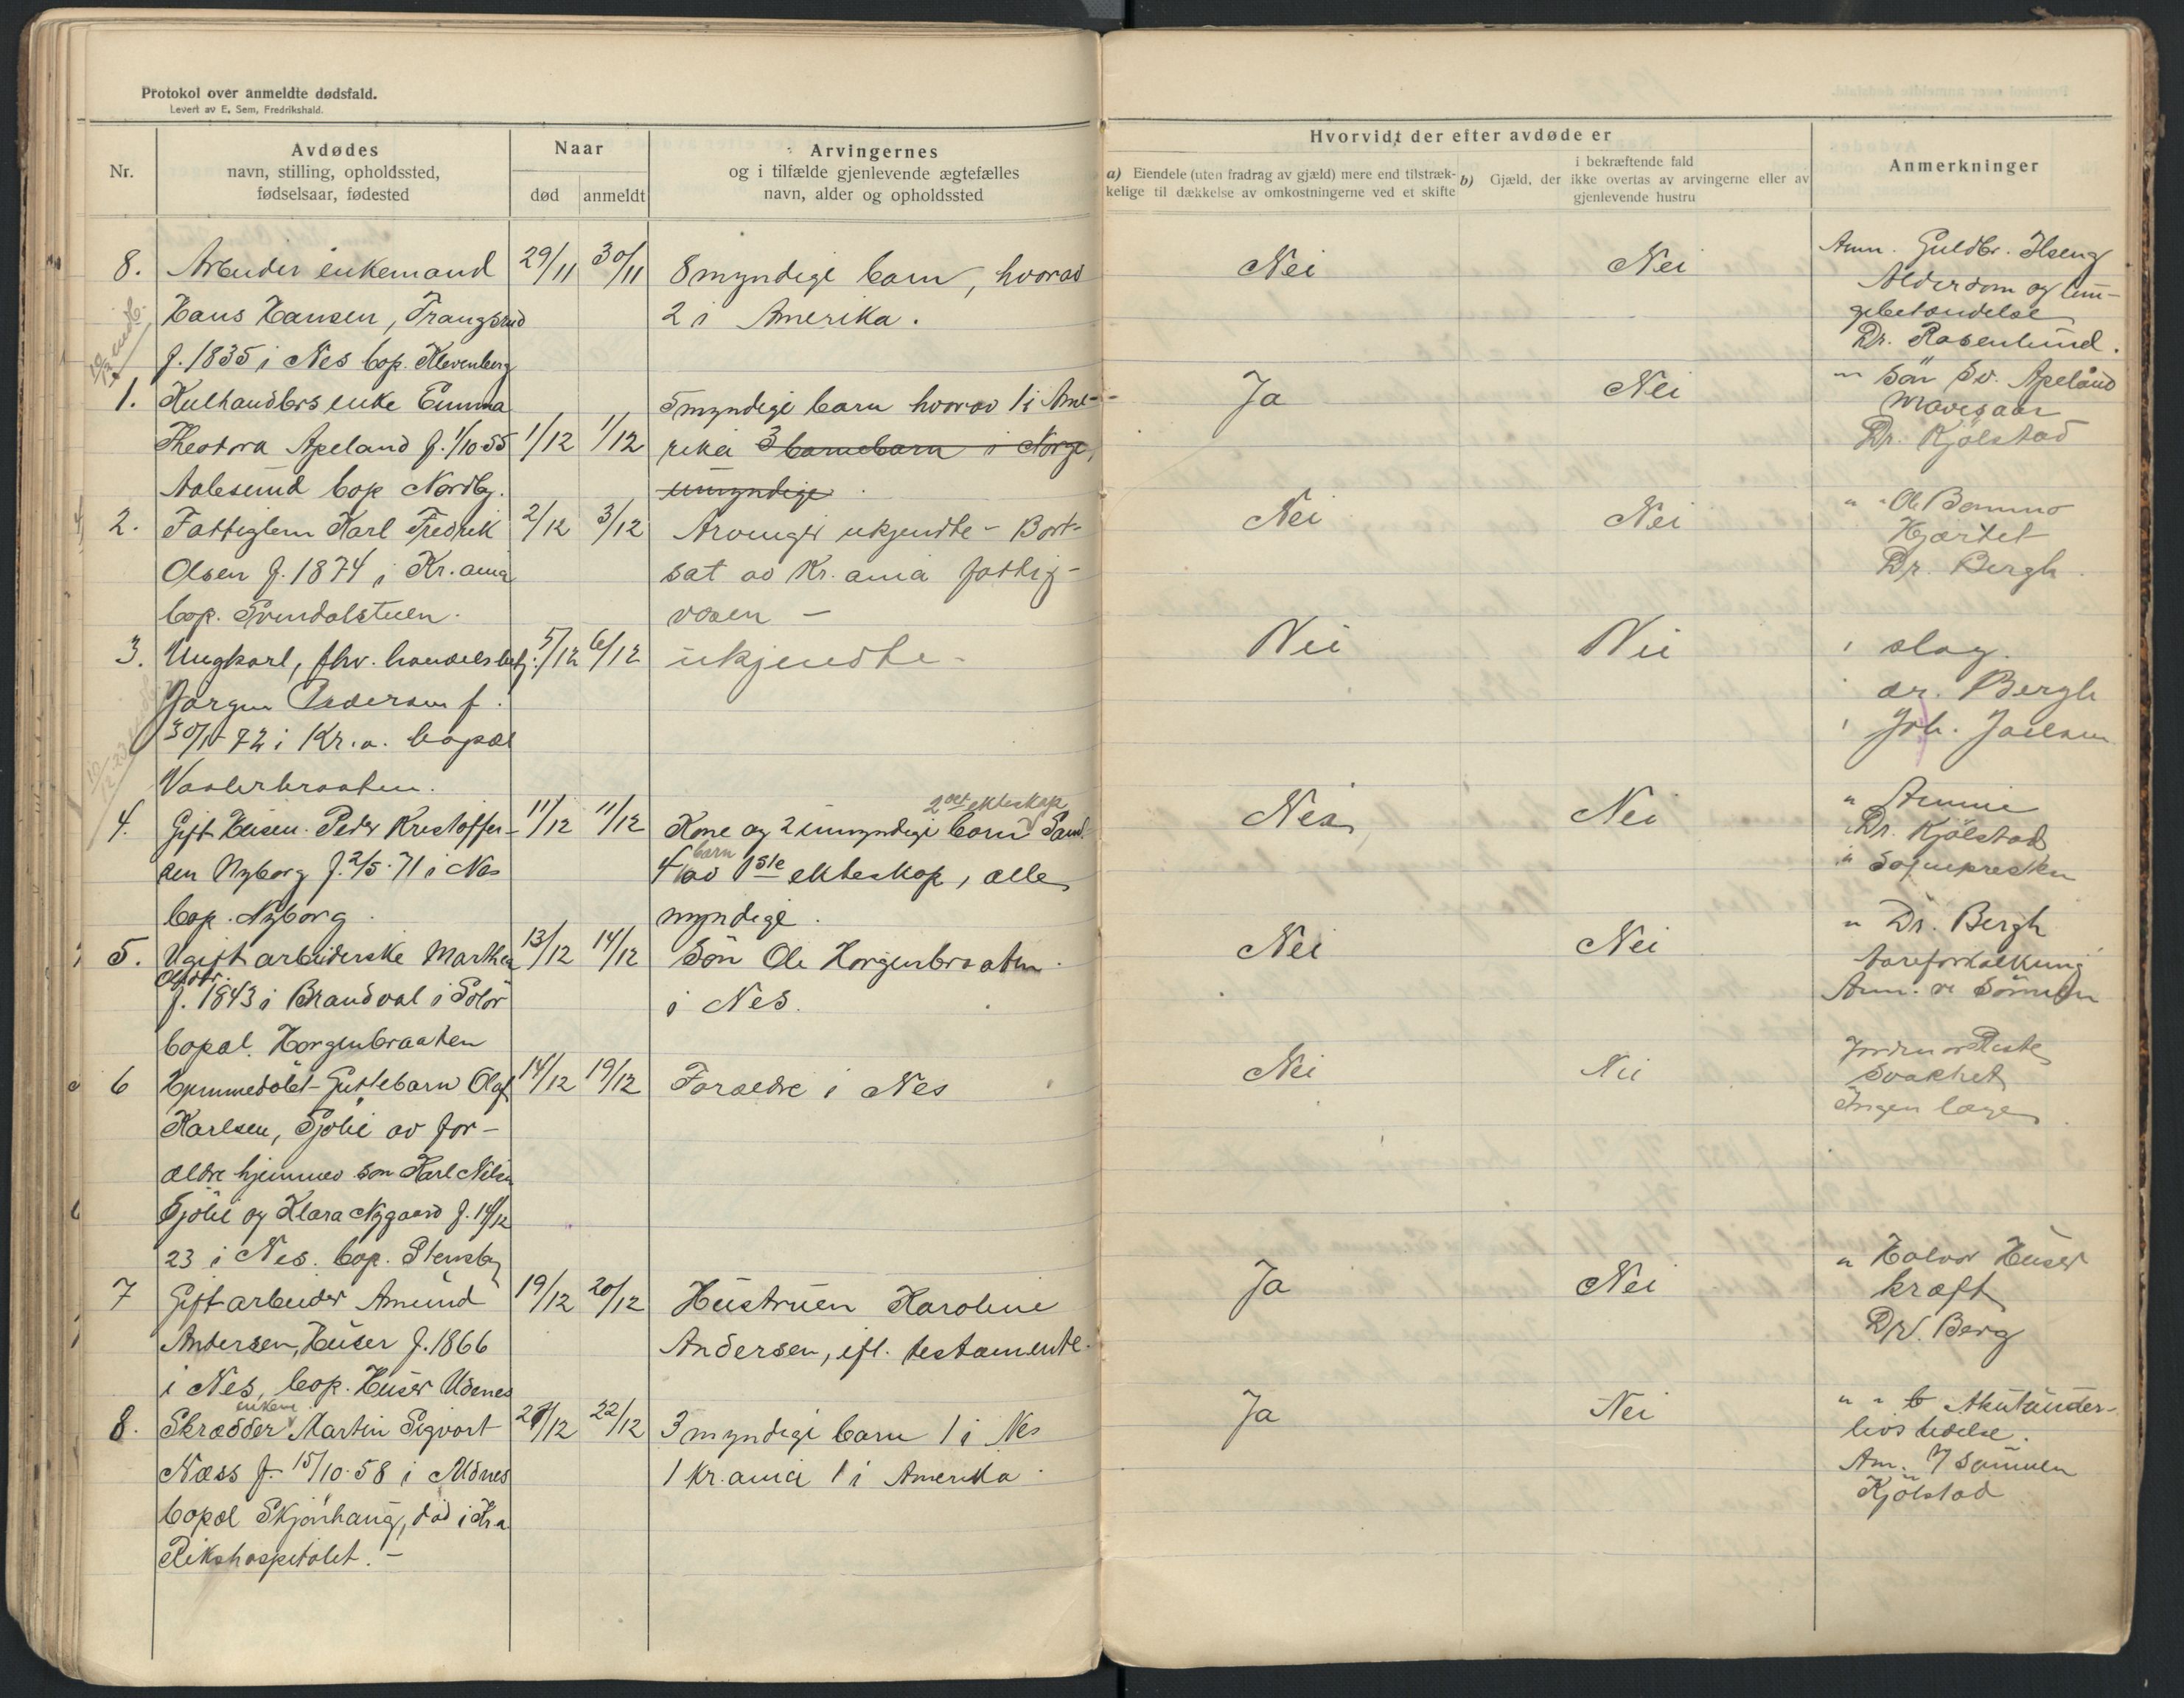 Protokol over anmeldte dødsfald.
Levert av E. Sem, Fredrikshald.
Nr.
Avdødes
navn, stilling, opholdssted,
fødselsaar, fødested
Naar
død
anmeldt
Arvingernes
og i tilfælde gjenlevende ægtefælles
navn, alder og opholdssted
Hvorvidt der efter avdøde er
a) Eiendele (uten fradrag av gjæld) mere end tilstræk-
kelige til dækkelse av omkostningerne ved et skifte
i bekræftende fald
b) Gjæld, der ikke overtas av arvingerne eller av
gjenlevende hustru
Anmerkninger
8. Arbeider enkemand 29/11 30/11 8 myndige barn, hvorav Nei Nei Anm. Guldbr. Ilseng
Hans Hansen, Trangsrud 2 i Amerika. Alderdom og lun-
gebetændelse
f. 1835 i Nes bop. Klevenberg Dr. Rosenlund.
1. Kulhandlers enke Emma 5 myndige barn hvorav 1 i Ame- Ja Nei " Søn Sv. Apeland
Mavesaar
Theodora Apeland f. 1/10 55 1/12 1/12 rika 3 barnebarn i Norge, Dr. Kjølstad
Aalesund bop Nordby. umyndige
2. Fattiglem Karl Fredrik 2/12 3/12 Arvinger ukjendte - Bort- Nei Nei " Ole Bommo
Hjertet
Olsen f. 1874 i Kr.ania sat av Kr.ania fattig- Dr. Bergh
bop. Svendalstuen. væsen -
3. Ungkarl, fhv. handelsbetj. 5/12 6/12 ukjendte - Nei Nei slag.
Jørgen Pedersen f. dr. Bergh
30/11 72 i Kr.a. bopæl Joh.
Vaalerbraaten.
4. Gift Husm. Peder Kristoffer- 11/12 11/12 Kone og 2 umyndige barn 2det ekteskap Nei Nei
Dr. Kjølstad
sen Nyborg f. 2/5.71 i Nes 4 barn av 1ste ekteskap, alle " Sognepresten
bop. Nyborg. myndige.
5. Ugift arbeiderske Marthea 13/12 14/12 Søn Ole Horgenbraaten Nei Nei " Dr. Bergh
Olsdtr. Aareforkalkning
f. 1843 i Brandval i Solør i Nes. Anm. av Sønnen
bopæl. Horgenbraaten
6 Hjemmedøbt Guttebarn Olaf 14/12 19/12 Forældre i Nes Nei Nei
Svakhet
Karlsen, Sjølie av for- Ingen læge
ældre hjemmev. søn Karl Nilsen
Sjølie og Klara Nygaard f. 14/12
23 i Nes. bop. Stensby
7 Gift arbeider Amund 19/12 20/12 Hustruen Karoline Ja Nei " Halvor Huser
kræft
Andersen, Huser f. 1866 Andersen, ifl. testamente. Dr. Berg
i Nes, bop. Huser Udenes
8. Skrædder enkem. Martin Sigvart 21/12 22/12 3 myndige barn 1 i Nes Ja Nei " " Akut under-
livslidelse.
Næss f. 15/10.58 i Udnes 1 Kr.ania 1 i Amerika. Am. sønnen
Kjølstad
bopæl Skjønhaug, død i Kr.a
Rikshospitalet. -